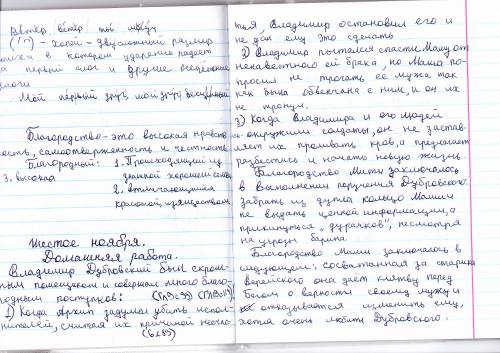 Ветер, ветер ты могуч
(!?) - хорей - двусложный размер
стиха в котором ударение падает
на первый слог и другие нечётные
слоги.
Мой первый друг, мой друг бесценный
Благородство - это высокая нравствен
ость, самоотверженность и честность
Благородный: 1. Происходящий из
3. высокая знатной хорошей семьи
2. отличающийся
красотой, изяществом
Шестое ноября.
Домашняя работа.
Владимир Дубровский был скром-
ным помещиком и совершал много благо-
родных поступков:
1) Когда Архип задумал убить испол-
нителей, считая их причиной несча-
тья, Владимир остановил его и
не дал ему это сделать
2) Владимир пытался спасти Машу от
ненавистного ей брака, но Маша по-
просил не трогать её мужа так
как была обвенчана с ним, и он их
не тронул.
3) Когда Владимира и его людей
окружили солдаты, он не застав-
ляет их проливать кровь, а предлагает
разбестись и начать новую жизнь.
Благородство Мити заключалось
в выполнении поручения Дубровского.
Забрать из дупла кольцо Машин
не выдать ценной информации, а
прикинуться „дурачков", несмотря
на угрозы барина.
Благородство Маши заключалось в
следующем: сосватанная за старика
Верейского она даёт клятву перед
Богом о верности своему мужу и
отказывается изменить ему,
хотя очень любить Дубровского.